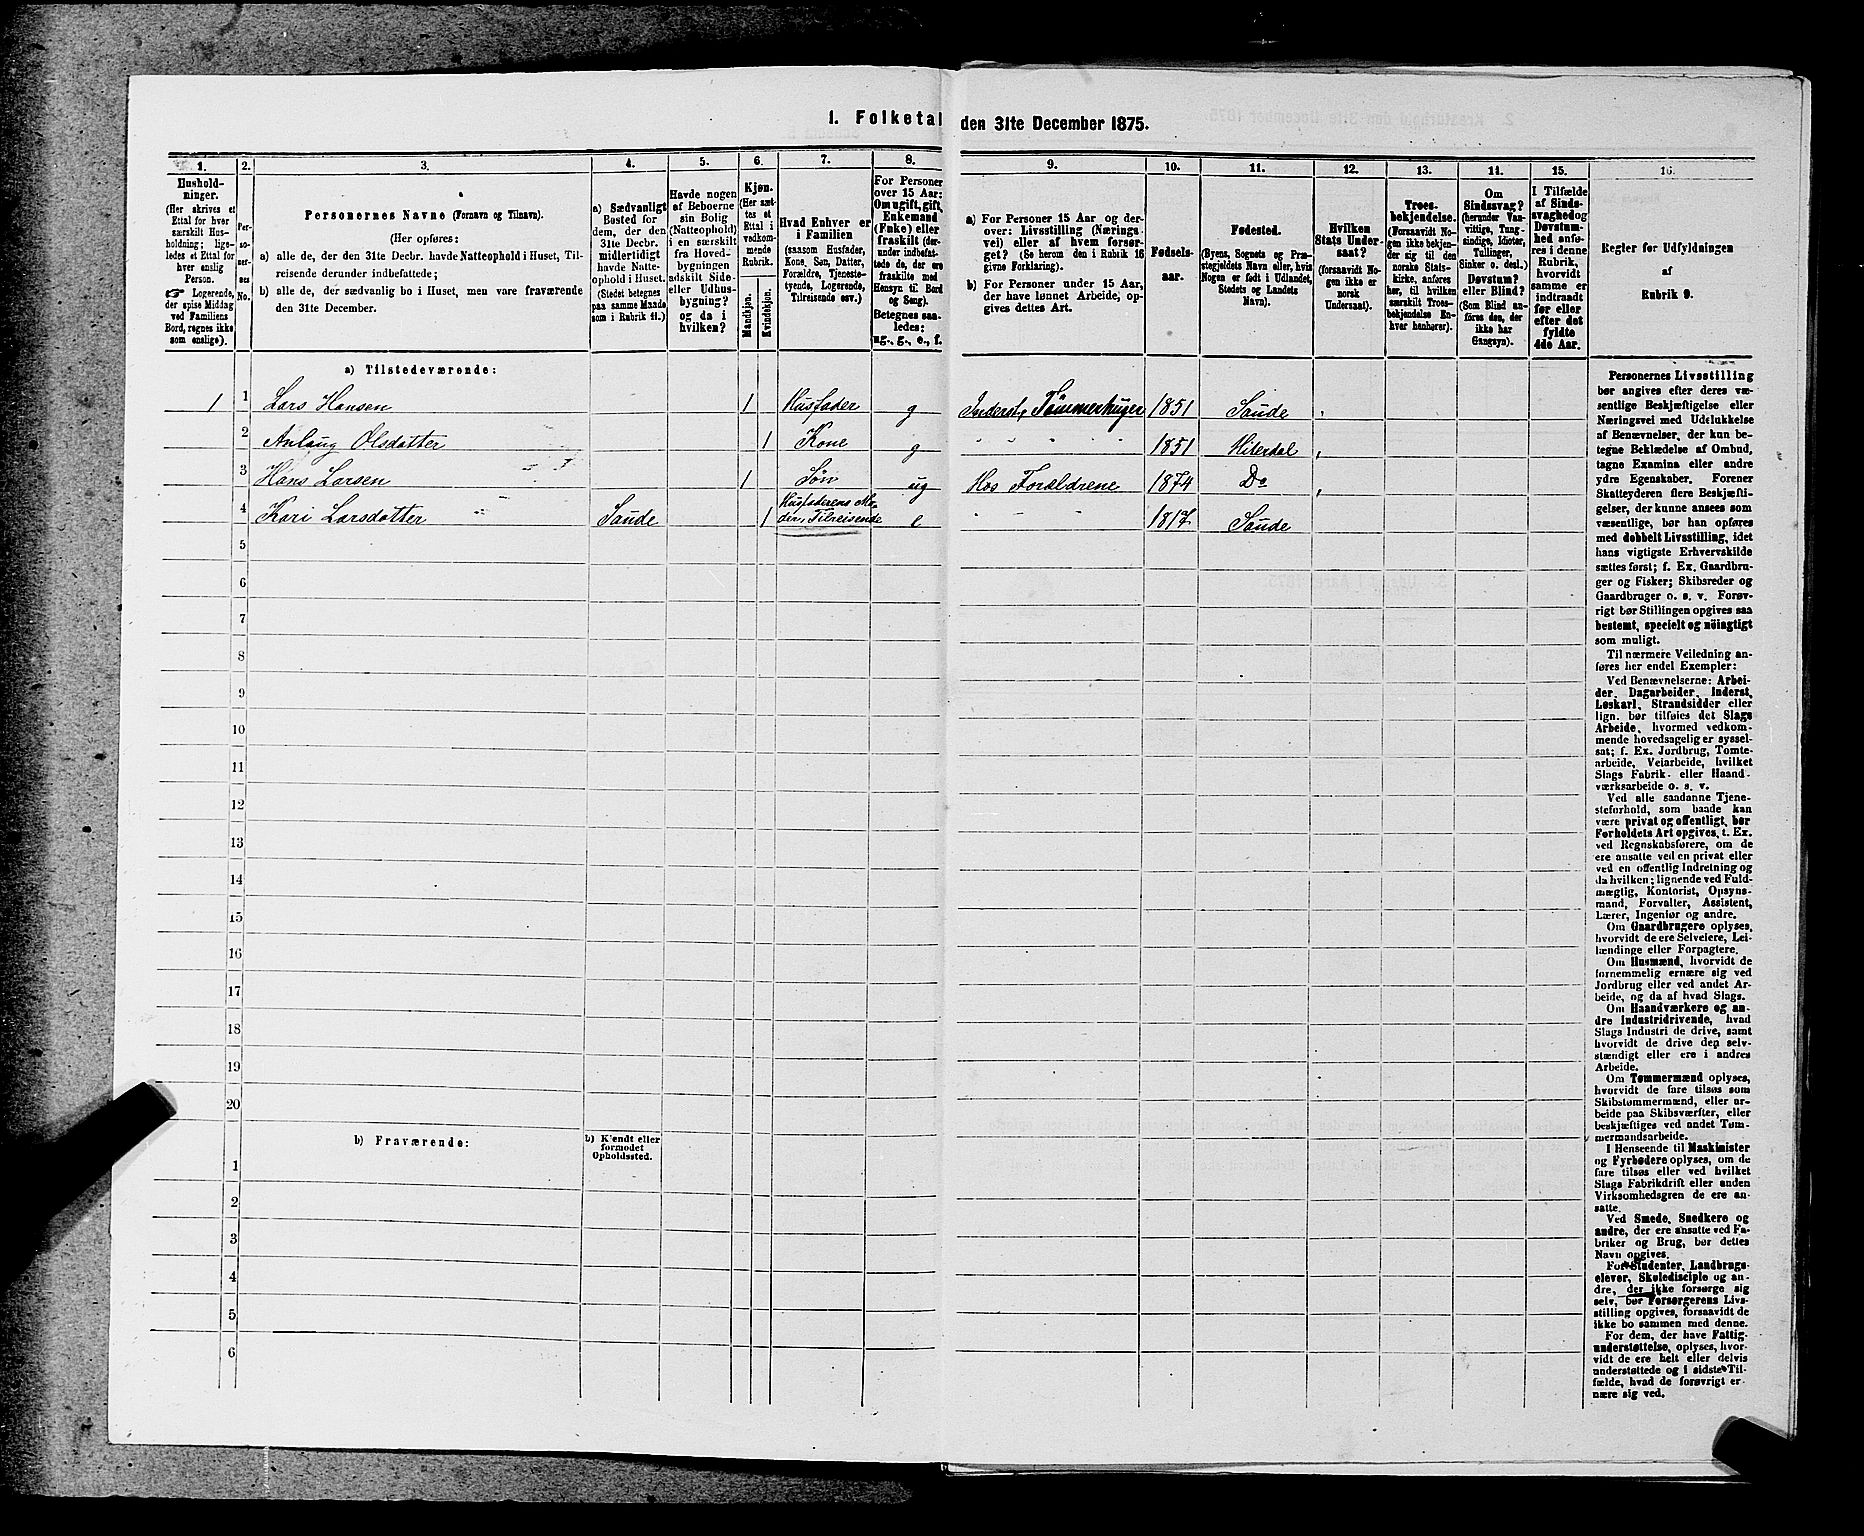 1. Folketal den 31te December 1875.
1. 2. 3. 4. 5. 6. 7. 8. 9. 10. 11. 12. 13. 14. 15. 16.
Hushold-
ninger.
(Her skrives et
Ettal for hver
særskilt Hus-
holdning; lige-
ledes et Ettal for
hver enslig
Person.
☞ Logerende,
der spise Middag
ved Familiens
Bord, regnes ikke
som enslige).
Per-
so-
ner-
nes
No.
Personernes Navne (Fornavn og Tilnavn).
(Her opføres:
a) alle de, der den 31te Decbr. havde Natteophold i Huset, Til-
reisende derunder indbefattede;
b) alle de, der sædvanlig bo i Huset, men vare fraværende
den 31te December.
a) Sædvanligt
Bosted for
dem, der den
31te Decbr.
midlertidigt
havde Natte-
ophold i Huset.
(Stedet betegnes
paa samme Maade
som i Rubrik 11.)
Havde nogen
af Beboerne
sin Bolig
(Natteophold)
i en særskilt
fra Hoved-
bygningen
adskilt Side-
eller Udhus-
bygning?
og da i
hvilken?
Kjøn.
(Her sæt-
tes et
Ettal i
vedkom-
mende
Rubrik.
Mandkjøn.
Kvindekjøn.
Hvad Enhver er
i Familien
(saasom Husfader,
Kone, Søn, Datter,
Forældre, Tjeneste-
tyende, Logerende,
Tilreisende osv.)
For Personer
over 15 Aar:
Om ugift, gift,
Enkemand
(Enke) eller
fraskilt (der-
under indbefat-
tede de, der ere
fraskilte med
Hensyn til Bord
og Seng).
Betegnes saa-
ledes:
ug., g., e., f.
a) For Personer 15 Aar og der-
over: Livsstilling (Nærings-
vei) eller af hvem forsør-
get? (Se herom den i Rubrik 16
givne Forklaring).
b) For Personer under 15 Aar,
der have lønnet Arbeide, op-
gives dettes Art.
Fødsels-
aar.
Fødested.
(Byens, Sognets og Præ-
stegjeldets Navn eller, hvis
Nogen er født i Udlandet,
Stedets og Landets
Navn).
Hvilken
Stats Under-
saat?
(forsaavidt No-
gen ikke er
norsk
Undersaat).
Troes-
bekjendelse.
(Forsaavidt No-
gen ikke bekjen-
der sig til den
norske Stats-
kirke, anføres
her, til hvilken
særskilt Troes-
bekjendelse En-
hver henhører).
Om
Sindssvag?
(herunder Van-
vittige, Tung-
sindige, Idioter,
Tullinger,
Sinker o. desl.)
Døvstum?
eller Blind?
(Som Blind an-
føres den, der
ikke har
Gangsyn).
I Tilfælde
af Sinds-
svaghed og
Døvstum-
hed anfø-
res i denne
Rubrik,
hvorvidt
samme er
indtraadt
før eller
efter det
fyldte
4de Aar.
Regler for Udfyldningen
af
Rubrik 9.
a) Tilstedeværende:
1 1 Lars Hansen 1 Husfader g Inderst, Tømmerhuger 1851 Saude
2 Anlaug Olsdatter 1 Kone g " " " " 1851 Hiterdal
3 Hans Larsen 1 Søn ug Hos Forældrene 1874 Do
4 Kari Larsdatter Saude 1 Husfaderens Mo-
der, Tilreisende e " " " 1817 Saude
5
6
7
8
9
10
11
12
13
14
15
16
17
18
19
20
b) Fraværende:
b) Kjendt eller
formodet
Opholdssted.
1
2
3
4
5
6
Personernes Livsstilling
bør angives efter deres væ-
sentlige Beskjæftigelse eller
Næringsvei med Udelukkelse
af Benævnelser, der kun be-
tegne Beklædelse af Ombud,
tagne Examina eller andre
ydre Egenskaber. Forener
Skatteyderen flere Beskjæfti-
gelser, der kunne ansees som
væsentlige, bør han opføres
med dobbelt Livsstilling, idet
hans vigtigste Erhvervskilde
sættes først; f. Ex. Gaardbru-
ger og Fisker; Skibsreder og
Gaardbruger o. s. v. Forøv-
rigt bør Stillingen opgives saa
bestemt, specielt og nöiagtigt
som muligt.
Til nærmere Veiledning an-
føres her endel Exempler:
Ved Benævnelserne: Arbei-
der, Dagarbeider, Inderst,
Løskarl, Strandsidder eller
lign. bør tilføies det Slags
Arbeide, hvormed vedkom-
mende hovedsagelig er syssel-
sat; f. Ex. Jordbrug, Tomte-
arbeide, Veiarbeide, hvilket
Slags Fabrik- eller Haand-
værksarbeide o. s. v.
Ved alle saadanne Tjene-
steforhold, som baade kan
være privat og offentligt, bør
Forholdets Art opgives, t. Ex.
ved Regnskabsførere, om de
ere ansatte ved en privat eller
ved en offentlig Indretning og
da hvilken; lignende ved Fuld-
mægtig, Kontorist, Opsyns-
mand, Forvalter, Assistent,
Lærer, Ingeniør og andre.
Om Gaardbrugere oplyses,
hvorvidt de ere Selveiere, Lei-
lændinge eller Forpagtere.
Om Husmænd, hvorvidt de
fornemmelig ernære sig ved
Jordbrug eller ved andet Ar-
beide, og da af hvad Slags.
Om Haandværkere og an-
dre Industridrivende, hvad
Slags Industri de drive, samt
hvorvidt de drive den selv-
stændigt eller ere i andres
Arbeide.
Om Tømmermænd oplyses,
hvorvidt de fare tilsøs som
Skibstømmermænd, eller ar-
beide paa Skibsværfter, eller
beskjæftiges ved andet Tøm-
mermandsarbeide.
I Henseende til Maskinister
og Fyrbødere oplyses, om de
fare tilsøs eller ved hvilket
Slags Fabrikdrift eller anden
Virksomhedsgren de ere an-
satte.
Ved Smede, Snedkere og
andre, der ere ansatte ved Fa-
briker og Brug, bør dettes
Navn opgives.
For Studenter, Landbrugs-
elever, Skoledisciple og an-
dre, der ikke forsørge sig
selv, bør Forsørgerens Livs-
stilling opgives, forsaavidt de
ikke bo sammen med denne.
For dem, der have Fattig-
understøttelse, oplyses, hvor-
vidt de ere helt eller delvis
understøttede og i sidste Til-
fælde, hvad de forøvrigt er-
nære sig ved.